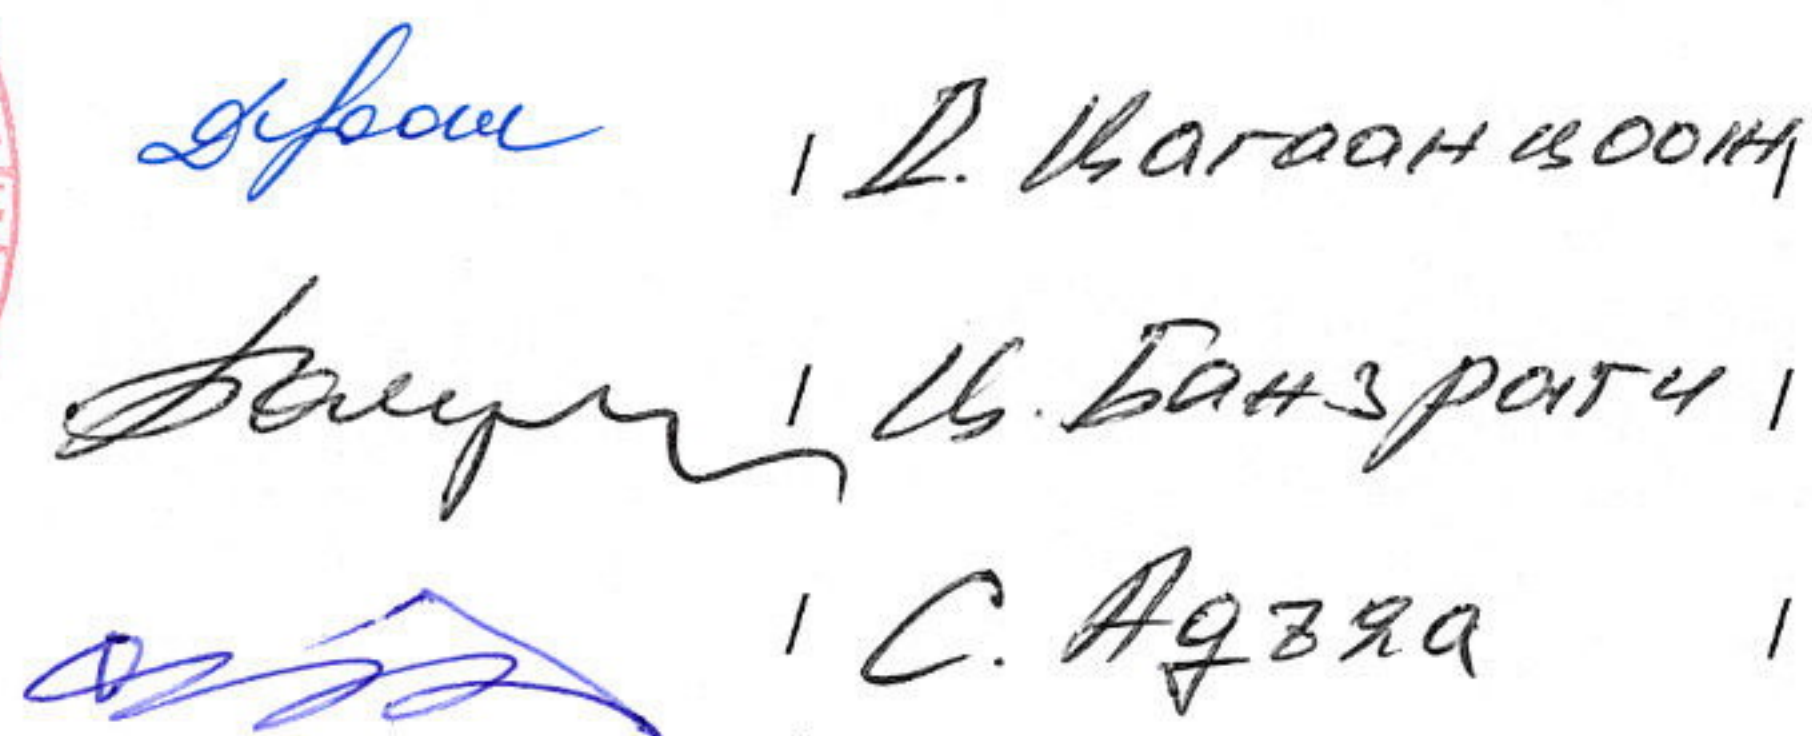 / Д. Цагаанцоож /
/ Ц. Банзрагч /
/ С. Адъяа /